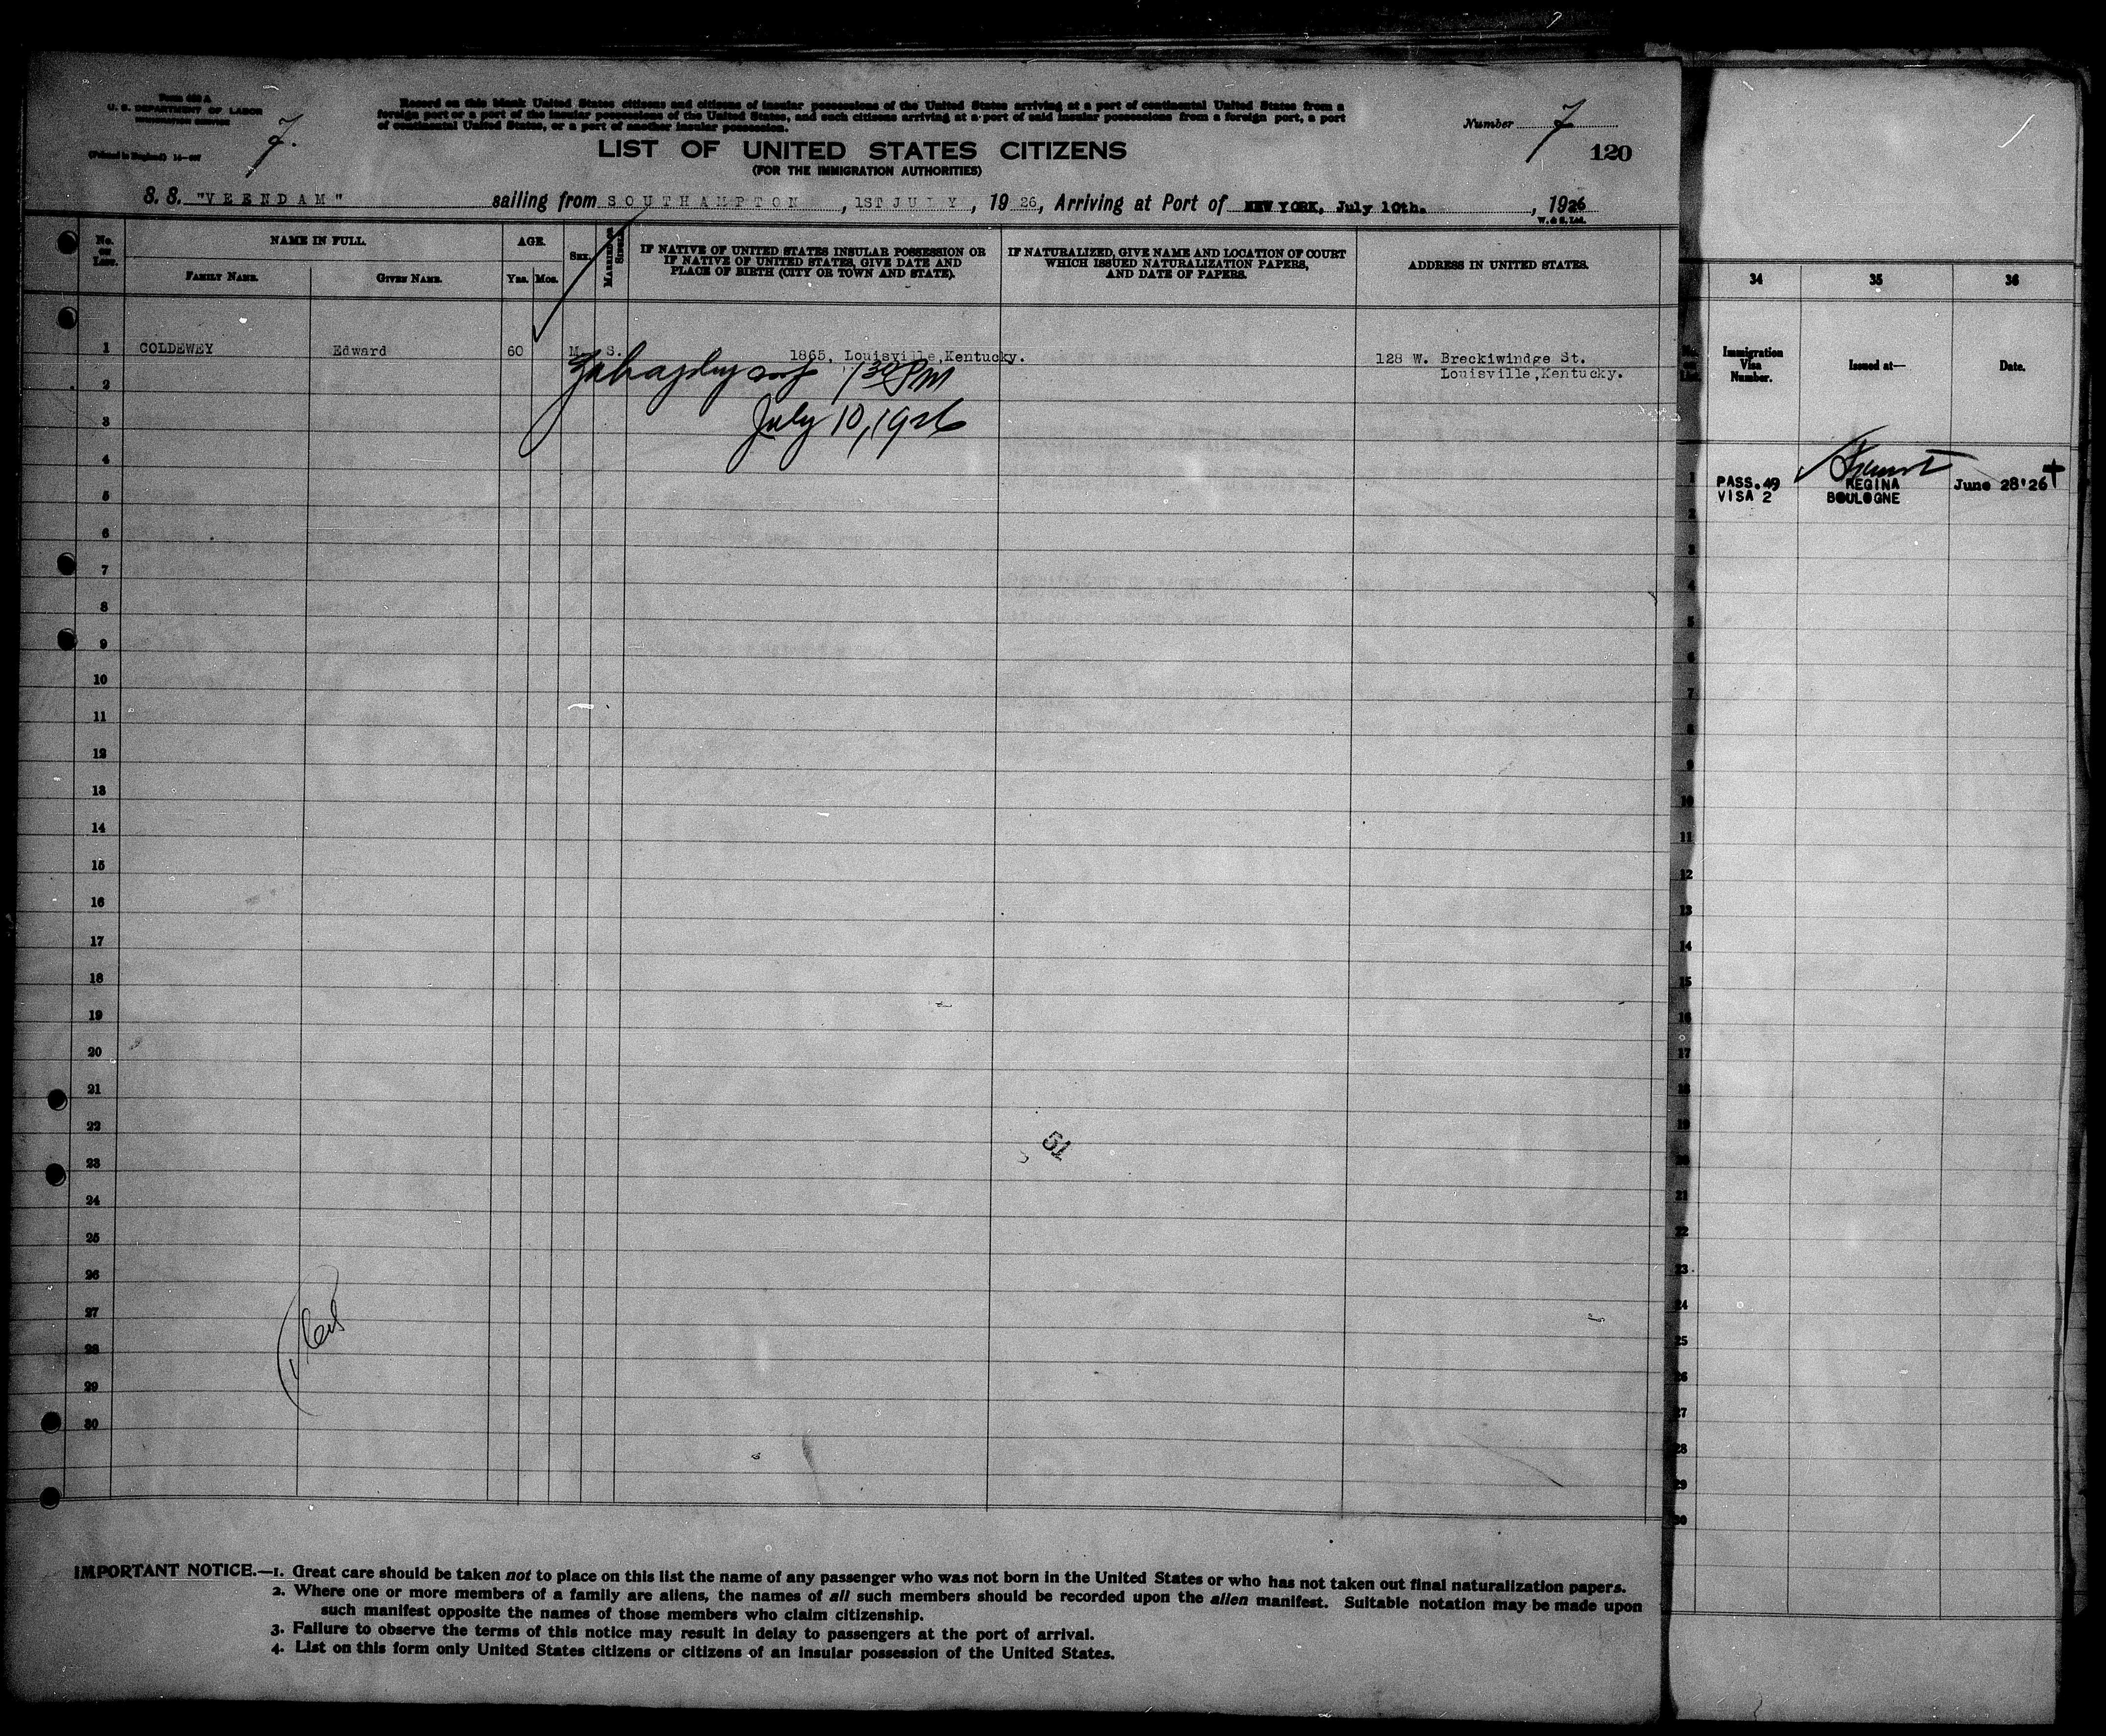 Form 630 A
U. S. DEPARTMENT OF LABOR
IMMIGRATION SERVICE
(Printed in England) 14—607
7.
Record on this blank United States citizens and citizens of insular possessions of the United States arriving at a port of continental United States from a
foreign port or a port of the insular possessions of the United States, and such citizens arriving at a port of said insular possessions from a foreign port, a port
of continental United States, or a port of another insular possession.
Number 7
120
LIST OF UNITED STATES CITIZENS
(FOR THE IMMIGRATION AUTHORITIES)
S. S. "VEENDAM" sailing from SOUTHAMPTON, 1ST JULY, 1926, Arriving at Port of NEW YORK, July 10th., 1926
W. & S. Ltd.
No. on List.
NAME IN FULL.
FAMILY NAME.
GIVEN NAME.
AGE.
Yrs. Mos.
SEX.
MARRIED OR SINGLE.
IF NATIVE OF UNITED STATES INSULAR POSSESSION OR
IF NATIVE OF UNITED STATES, GIVE DATE AND
PLACE OF BIRTH (CITY OR TOWN AND STATE).
IF NATURALIZED, GIVE NAME AND LOCATION OF COURT
WHICH ISSUED NATURALIZATION PAPERS,
AND DATE OF PAPERS.
ADDRESS IN UNITED STATES.
1 COLDEWEY Edward 60 M. S. 1865, Louisville,Kentucky. 128 W. Breckiwindge St.
Louisville,Kentucky.
1 30 PM
July 10, 1926
2
3
4
5
6
7
8
9
10
11
12
13
14
15
16
17
18
19
20
21
22
23
24
25
26
27
28
29
30
51
34
35
36
Immigration
Visa
Number.
Issued at—
Date.
1 PASS. 49 REGINA June 28'26
VISA 2 BOULOGNE
2
3
4
5
6
7
8
9
10
11
12
13
14
15
16
17
18
19
20
21
22
23
24
25
26
27
28
29
30
IMPORTANT NOTICE.—1. Great care should be taken not to place on this list the name of any passenger who was not born in the United States or who has not taken out final naturalization papers.
2. Where one or more members of a family are aliens, the names of all such members should be recorded upon the alien manifest. Suitable notation may be made upon
such manifest opposite the names of those members who claim citizenship.
3. Failure to observe the terms of this notice may result in delay to passengers at the port of arrival.
4. List on this form only United States citizens or citizens of an insular possession of the United States.